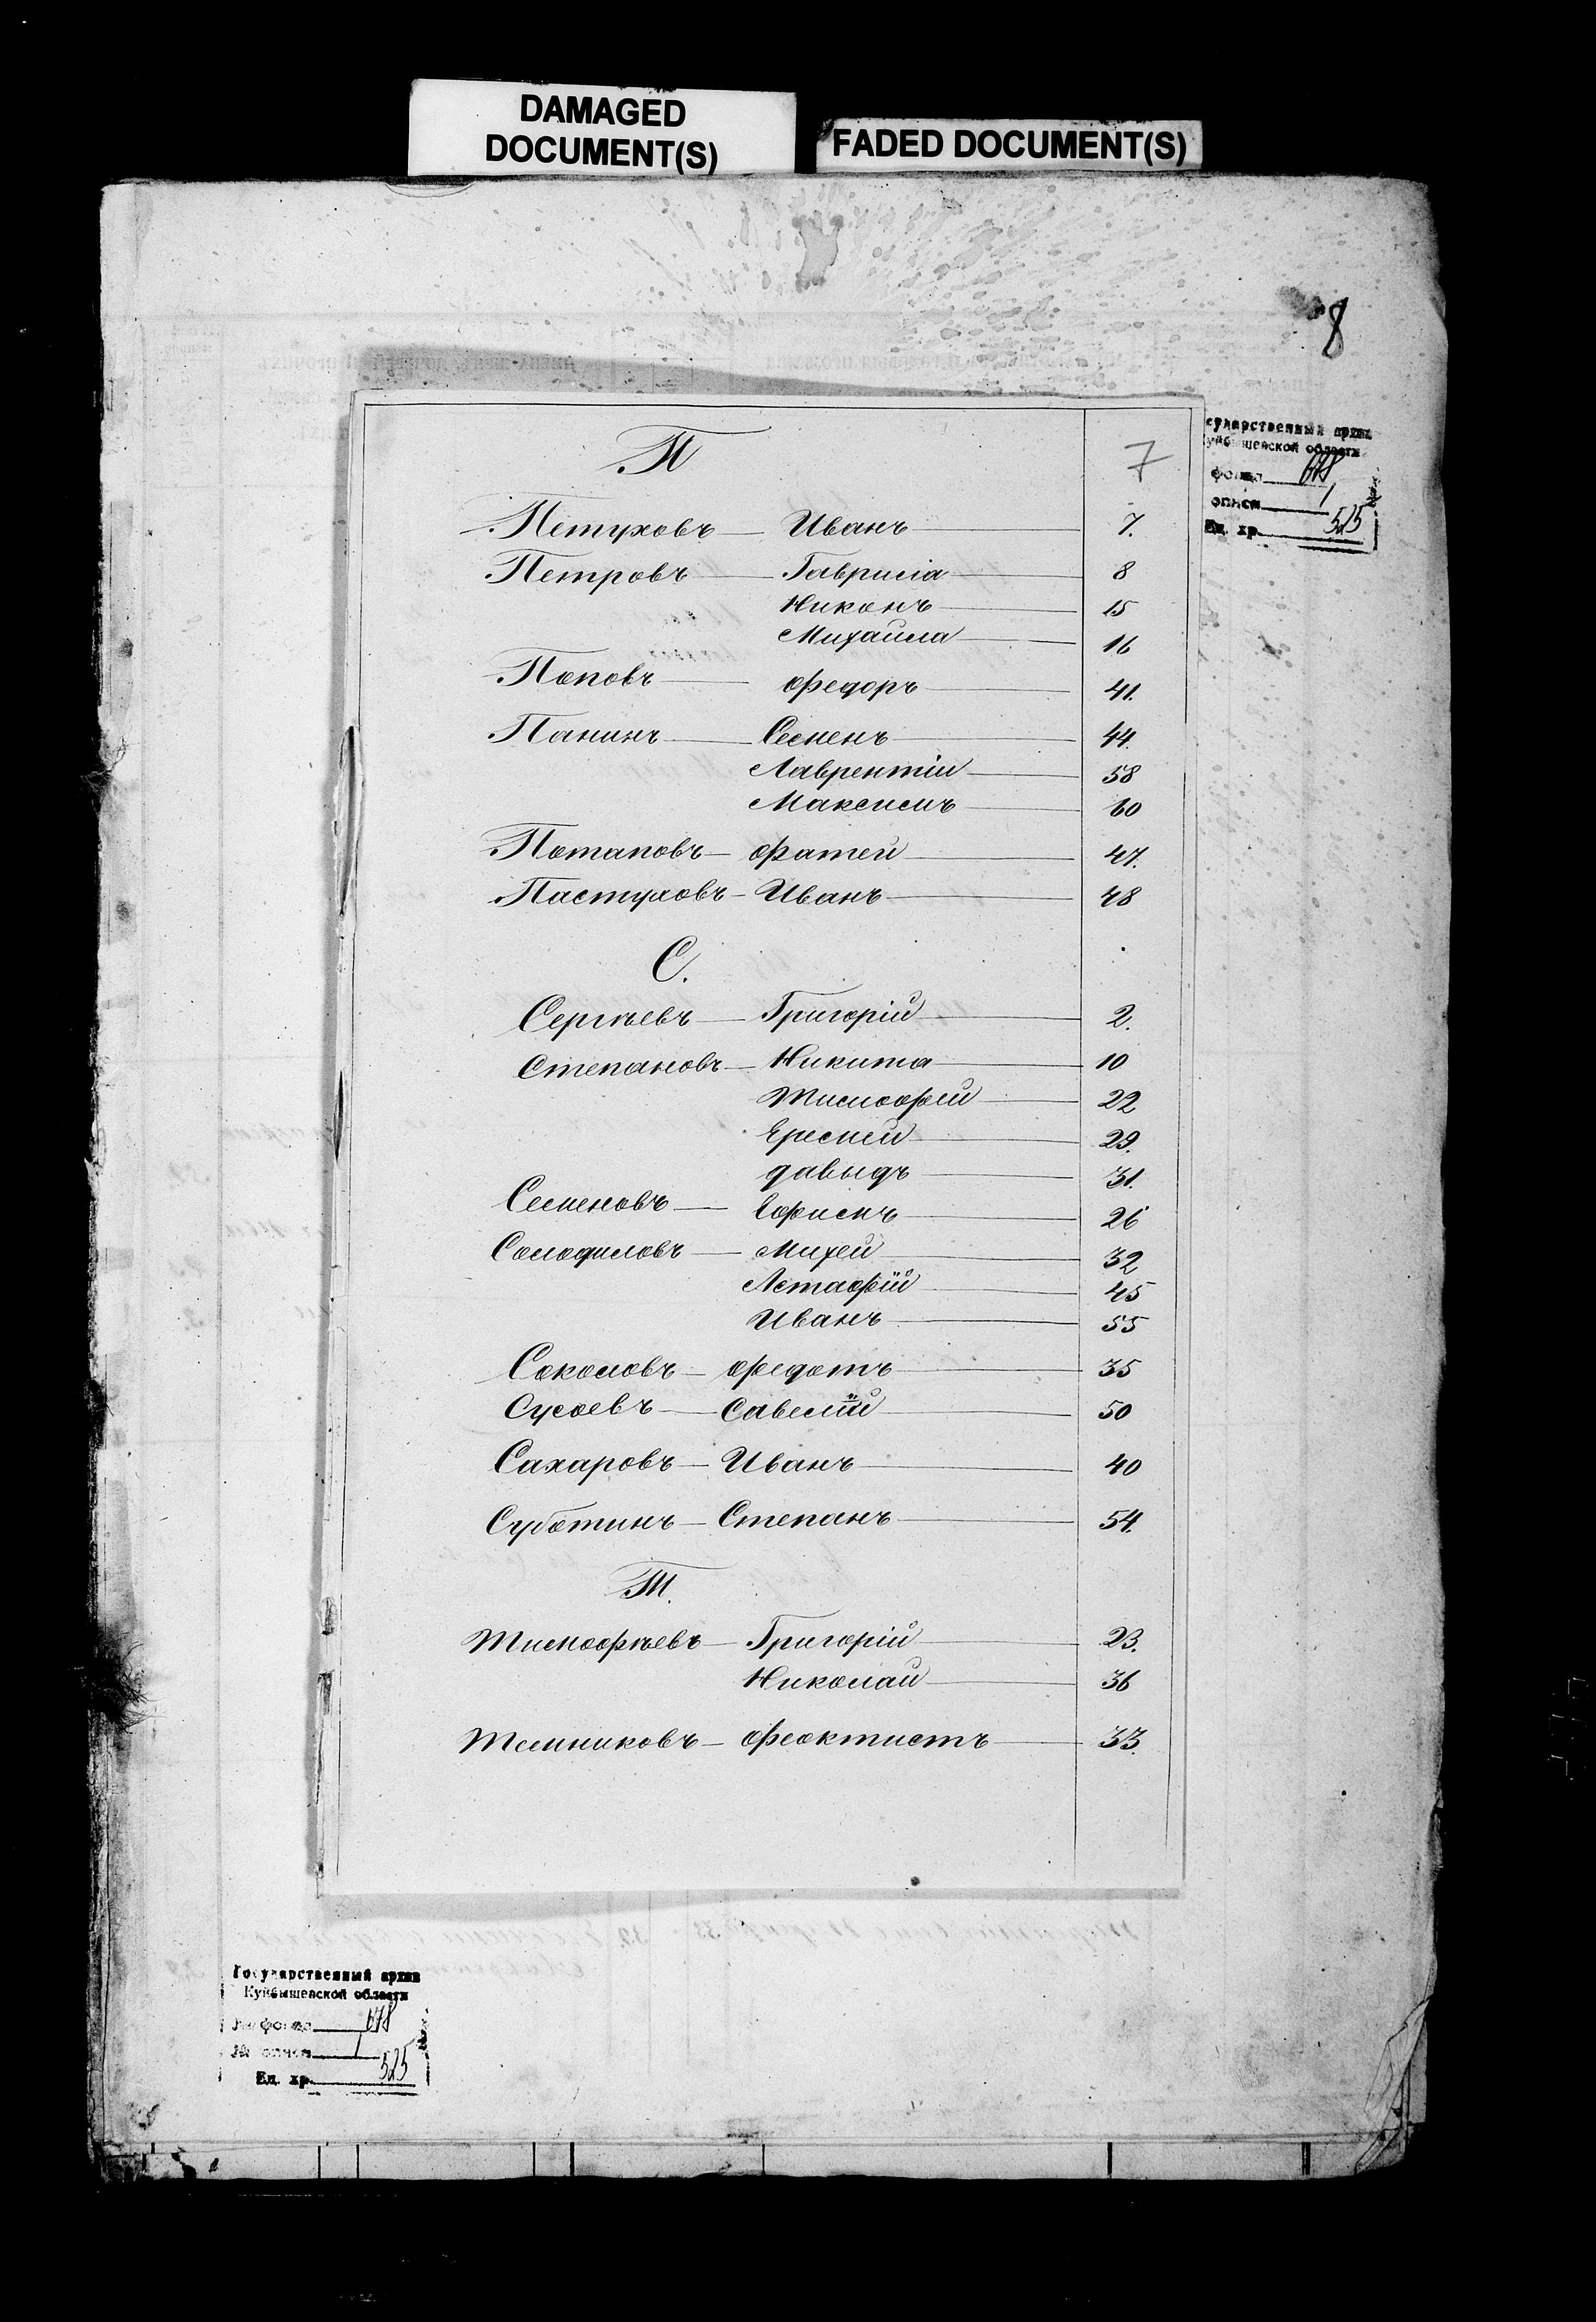 DAMAGED
DOCUMENT(S)
FADED DOCUMENT(S)
8
сударственный архив
уйбышевской области
фонд 678
описи 1
Ед. хр. 525
П
7
Петуховъ — Иванъ 7.
Петровъ — Гаврила 8
Никонъ 15
Михаила 16
Поповъ — Федоръ 41.
Панинъ — Семенъ 44.
Лаврентiй 58
Максимъ 60
Потаповъ — Фатей 47.
Пастуховъ — Иванъ 48
С.
Сергѣевъ — Григорiй 2.
Степановъ — Никита 10
Тимофей 22
Еремей 29.
Давыдъ 31.
Семеновъ — Ефимъ 26
Солодиловъ — Михей 32
Астафiй 45
Иванъ 55
Соколовъ — Федотъ 35
Сусоевъ — Савелiй 50
Сахаровъ — Иванъ 40
Суботинъ — Степанъ 54.
Т.
Тимофѣевъ — Григорiй 23.
Николай 36
Темниковъ — Феоктистъ 33.
Государственный архив
Куйбышевской области
№ фонда 678
№ описи 1
Ед. хр. 525